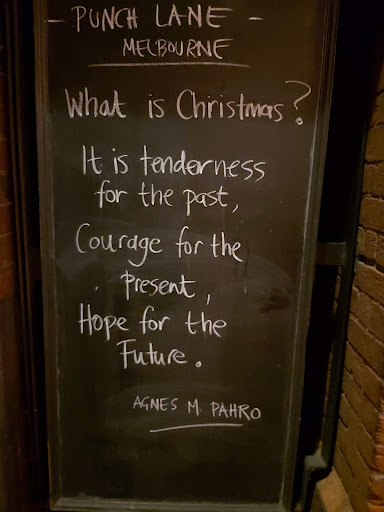 - PUNCH LANE -
MELBOURNE
What is Christmas?
It is tenderness
for the past,
Courage for the
present,
Hope for the
Future.
AGNES M. PAHRO